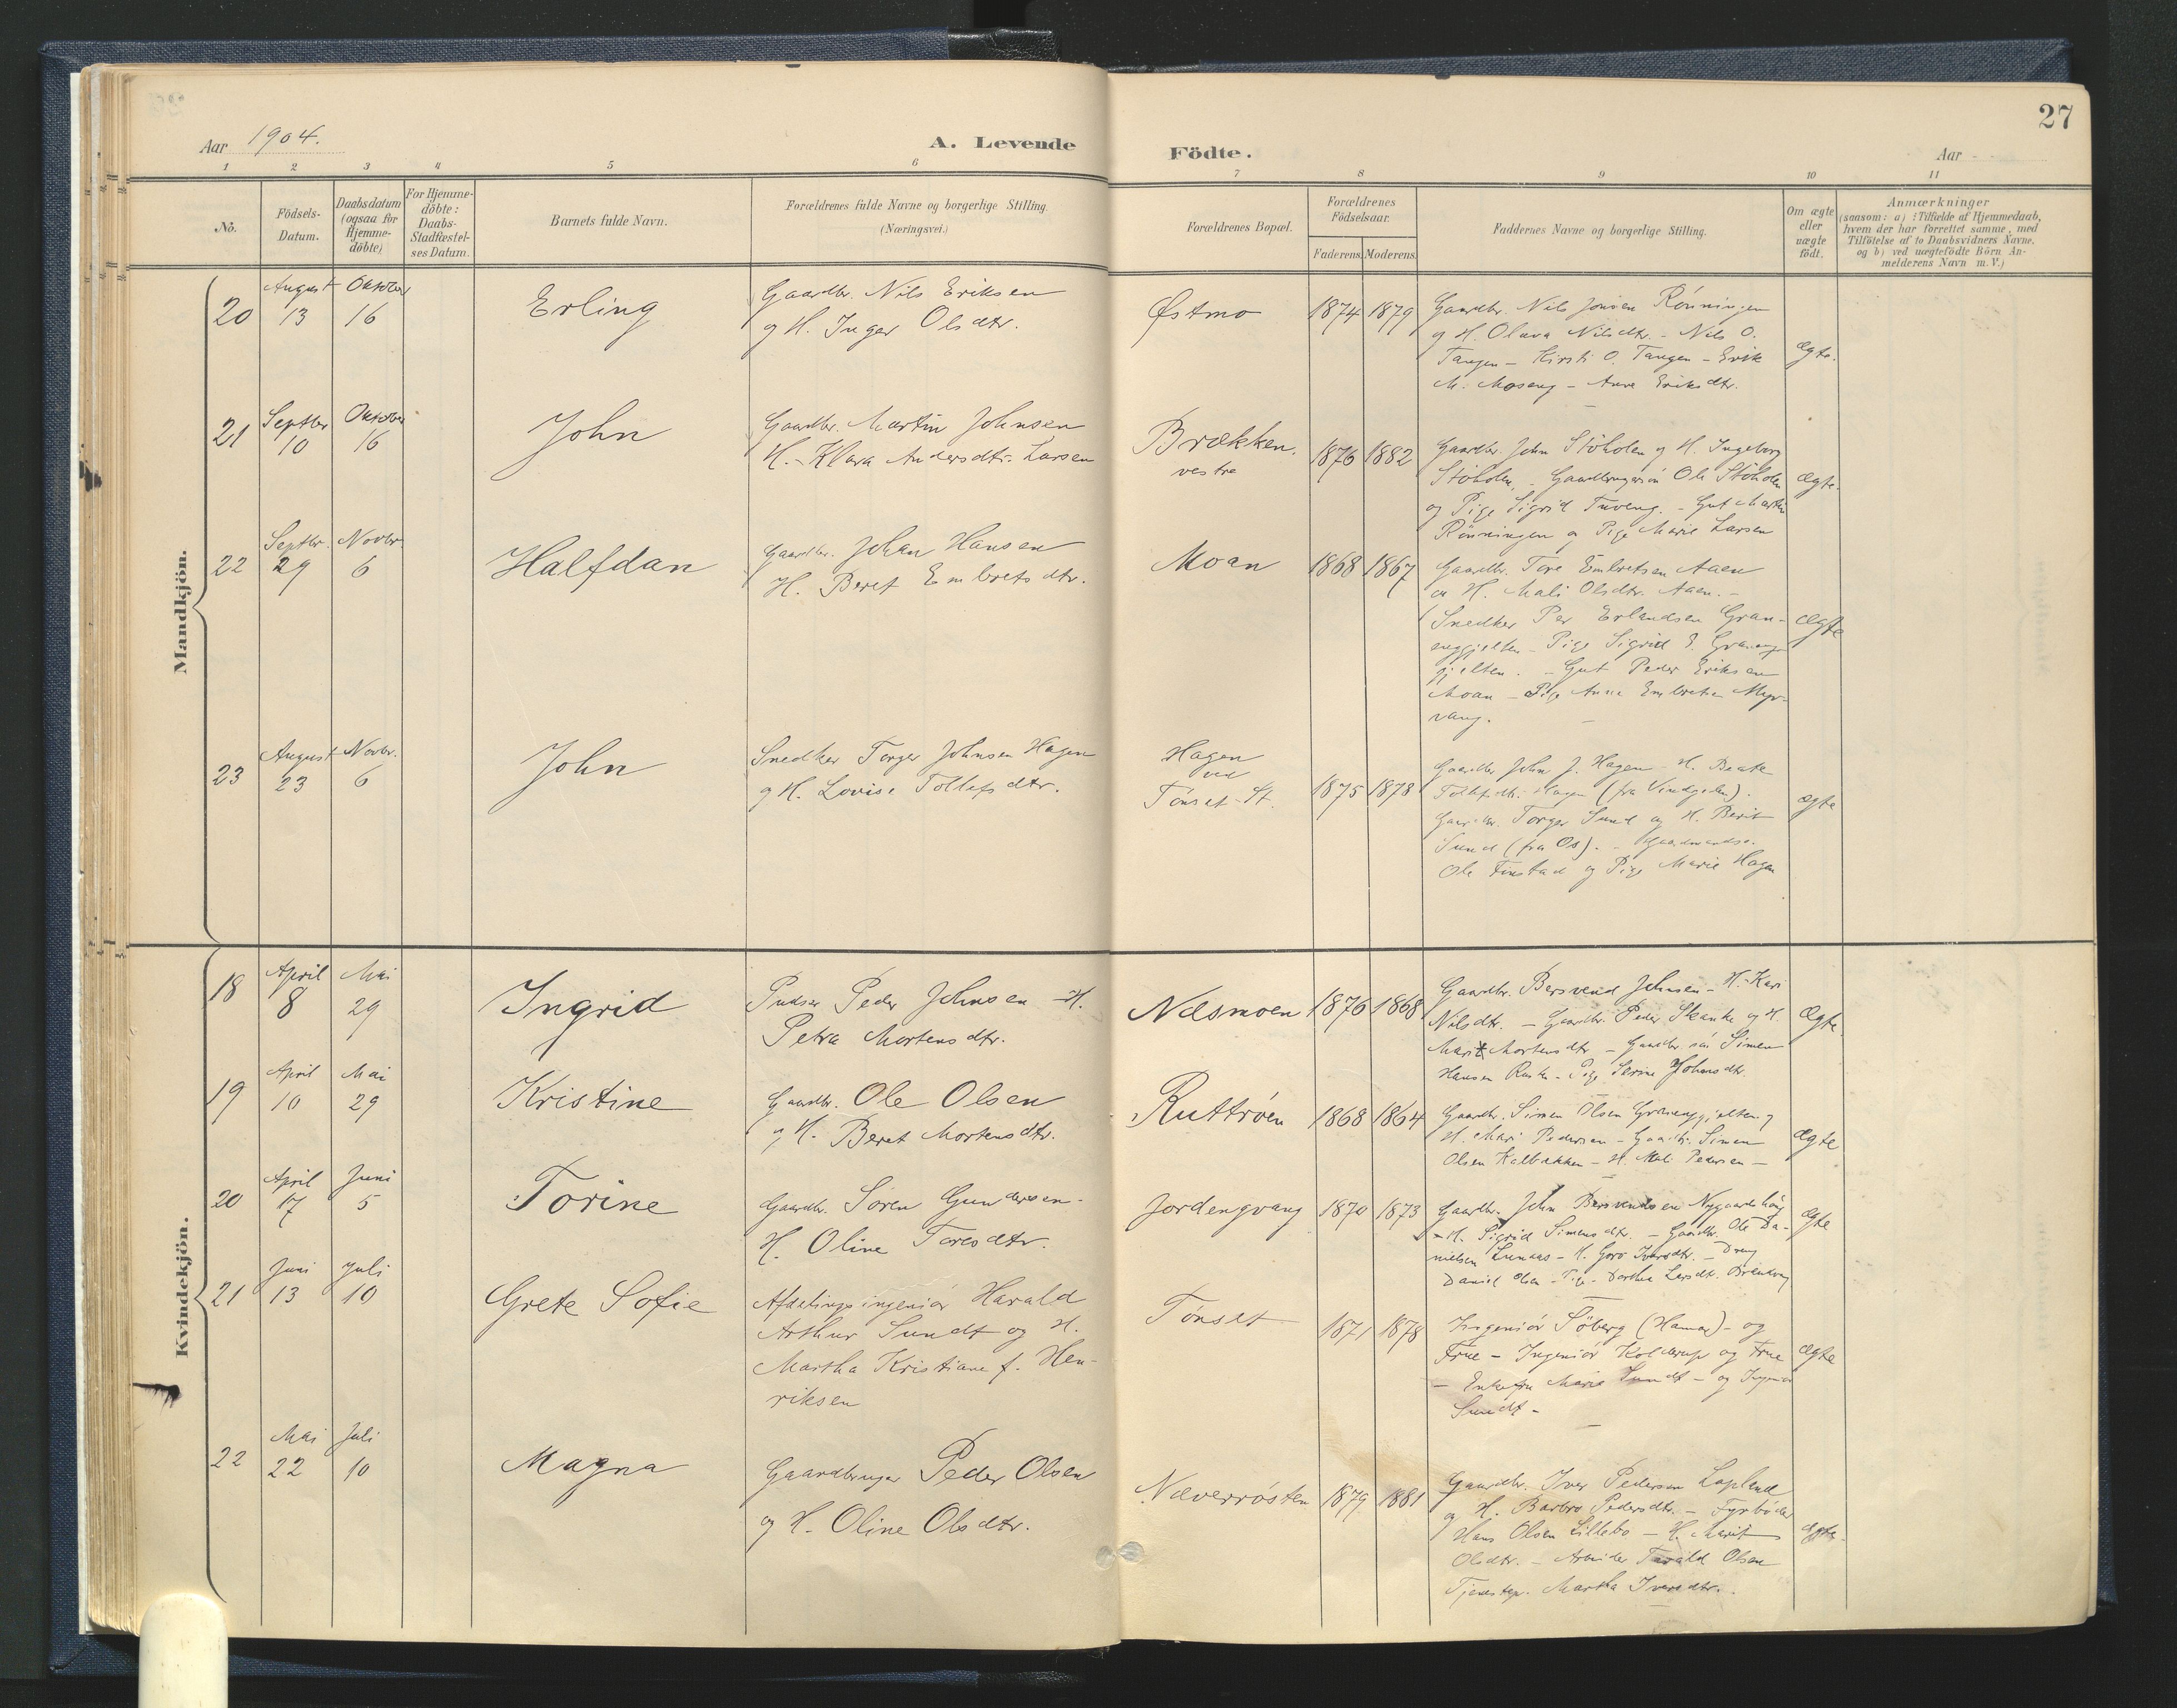 27
Aar 1904.
A. Levende
Födte.
Aar
1 2 3 4 5 6
7 8 9 10 11
No.
Födsels-
Datum.
Daabsdatum
(ogsaa for
Hjemme-
döbte)
For Hjemme-
döbte:
Daabs-
Stadfæstel-
ses Datum.
Barnets fulde Navn.
Forældrenes fulde Navne og borgerlige Stilling.
(Næringsvei.)
Forældrenes Bopæl.
Forældrenes
Födselsaar.
Faderens. Moderens.
Faddernes Navne og borgerlige Stilling.
Om ægte
eller
uægte
födt.
Anmærkninger
(saasom: a) i Tilfælde af Hjemmedaab,
hvem der har forrettet samme, med
Tilföielse af to Daabsvidners Navne.
og b) ved uægtefödte Börn An-
melderens Navn m. V.)
Mandkjön.
20
August
13
Oktober
16
Erling
Gaardbr. Nils Eriksen
og H. Inger Olsdtr.
Østmo
1874
1879
Gaardbr. Nils Jonsen Rönningen
og H. Olava Nilsdtr. - Nils O.
Tangen - Kirsti O. Tangen - Erik
M. Moseng - Anne Eriksdtr.
ægte.
21
Septbr
10
Oktober
16
John
Gaardbr. Martin Johnsen
H. - Klara Andersdtr. Larsen
Brækken.
vestre
1876
1882
Gaardbr. John Stöholen og H. Ingeborg
Stöholen. - Ole Stöholen
og Pige Sigrid Tuveng. - Gut Martin
Rönningen og Pige Marie Larsen
ægte.
22
Septbr.
29
Novbr.
6
Halfdan
Gaardbr. Johan Hansen
H. Beret Embretsdtr.
Moan
1868
1867
Gaardbr. Tore Embretsen Aaen
og H. Mali Olsdtr. Aaen. -
Snedker Per Erlandsen Gran-
Pige Sigrid E.
gjelten. - Gut Peder Eriksen
Moan - Pige Anne Embretsen Myr-
vang.
ægte
23
August
23
Novbr.
6
John
Snedker Torger Johnsen Hagen
og H. Lovise Tollefsdtr.
Hagen
ved
Tönset St.
1875
1878
Gaardbr John J. Hagen - H. Beate
Tollefsdtr. Hagen (fra Vindgelen).
Gaardbr. Torger Sund og H. Berit
Sund (fra Os). -
Ole Finstad og Pige Marie Hagen
ægte
Kvindekjön.
18
April
8
Mai
29
Ingrid
Pudser Peder Johnsen - H.
Petra Mortensdtr.
Næsmoen
1876
1868
Gaardbr. Bersvend Johnsen - H. Kari
Nilsdtr. - Gaardbr. Peder Skanke og H.
Marit Mortensdtr - Gaardbr. sön Simen
Hansen - Pige Serine Johnsdtr.
ægte.
19
April
10
Mai
29
Kristine
Gaardbr. Ole Olsen
og H. Beret Mortensdtr.
Ruttröen
1868
1864
Gaardbr. Simen Olsen og
H. Mari Pedersen - Gaardbr. Simen
Olsen Kalbakken - H. Mali Pedersen -
ægte
20
April
17
Juni
5
Torine
Gaardbr. Sören Gundersen -
H. Oline Toresdtr.
Jordengvang
1870
1873
Gaardbr. John Bersvendsen Nygaardshög
- H. Sigrid Simensdtr. - Gaardbr. Ole Da-
nielsen Lunaas - H. Goro Iversdtr. - Dreng
Daniel Olsen - Pige - Dorthea Larsdtr.
ægte
21
Juni
13
Juli
10
Grete Sofie
Afdelingsingeniör Harald
Arthur Sundt og H.
Martha Kristiane f. Hen-
riksen
Tönset
1871
1878
Ingeniör Söberg (Hamar) - og
Frue - Ingeniör Kolderup og Frue
- Enkefru Marie Sundt - og
Sundt -
ægte
22
Mai
22
Juli
10
Magna
Gaardbruger Peder Olsen
og H. Oline Olsdtr.
Næverrösten
1879
1881
Gaardbr. Iver Pedersen Lapland
og H. Barbro Pedersdtr. - Fyrböder
Hans Olsen Lillebo - H. Marit
Olsdtr. - Arbeider Olsen
Tjenestep. Martha Iversdtr.
ægte.